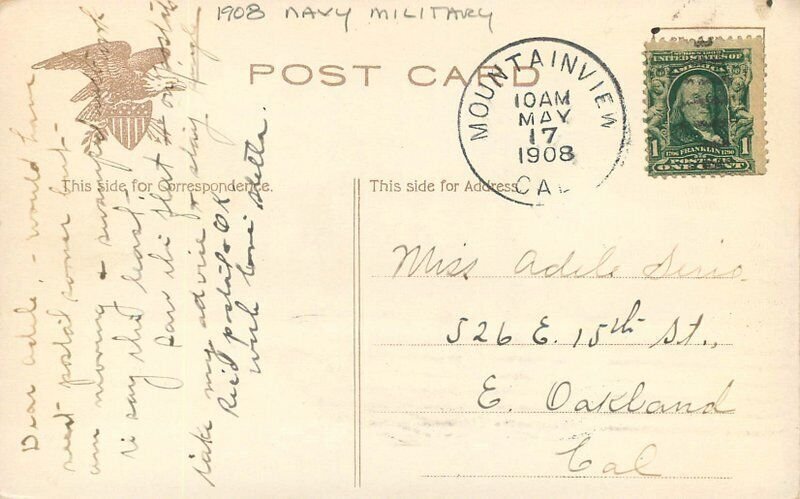 1908 NAVY MILITARY
POST CARD
MOUNTAINVIEW
10AM
MAY
17
1908
CAL
UNITED STATES OF
AMERICA
1 1
1706 FRANKLIN 1790
POSTAGE
ONE CENT
This side for Correspondence.
This side for Address.
Dear Adele, - would have
sent postal sooner but -
am moving + swamped with work
to say the least -
Saw the flat
take my advice + stay
Rec'd postal OK
with love Stella.
Miss Adele
526 E. 15th St.,
E. Oakland
Cal